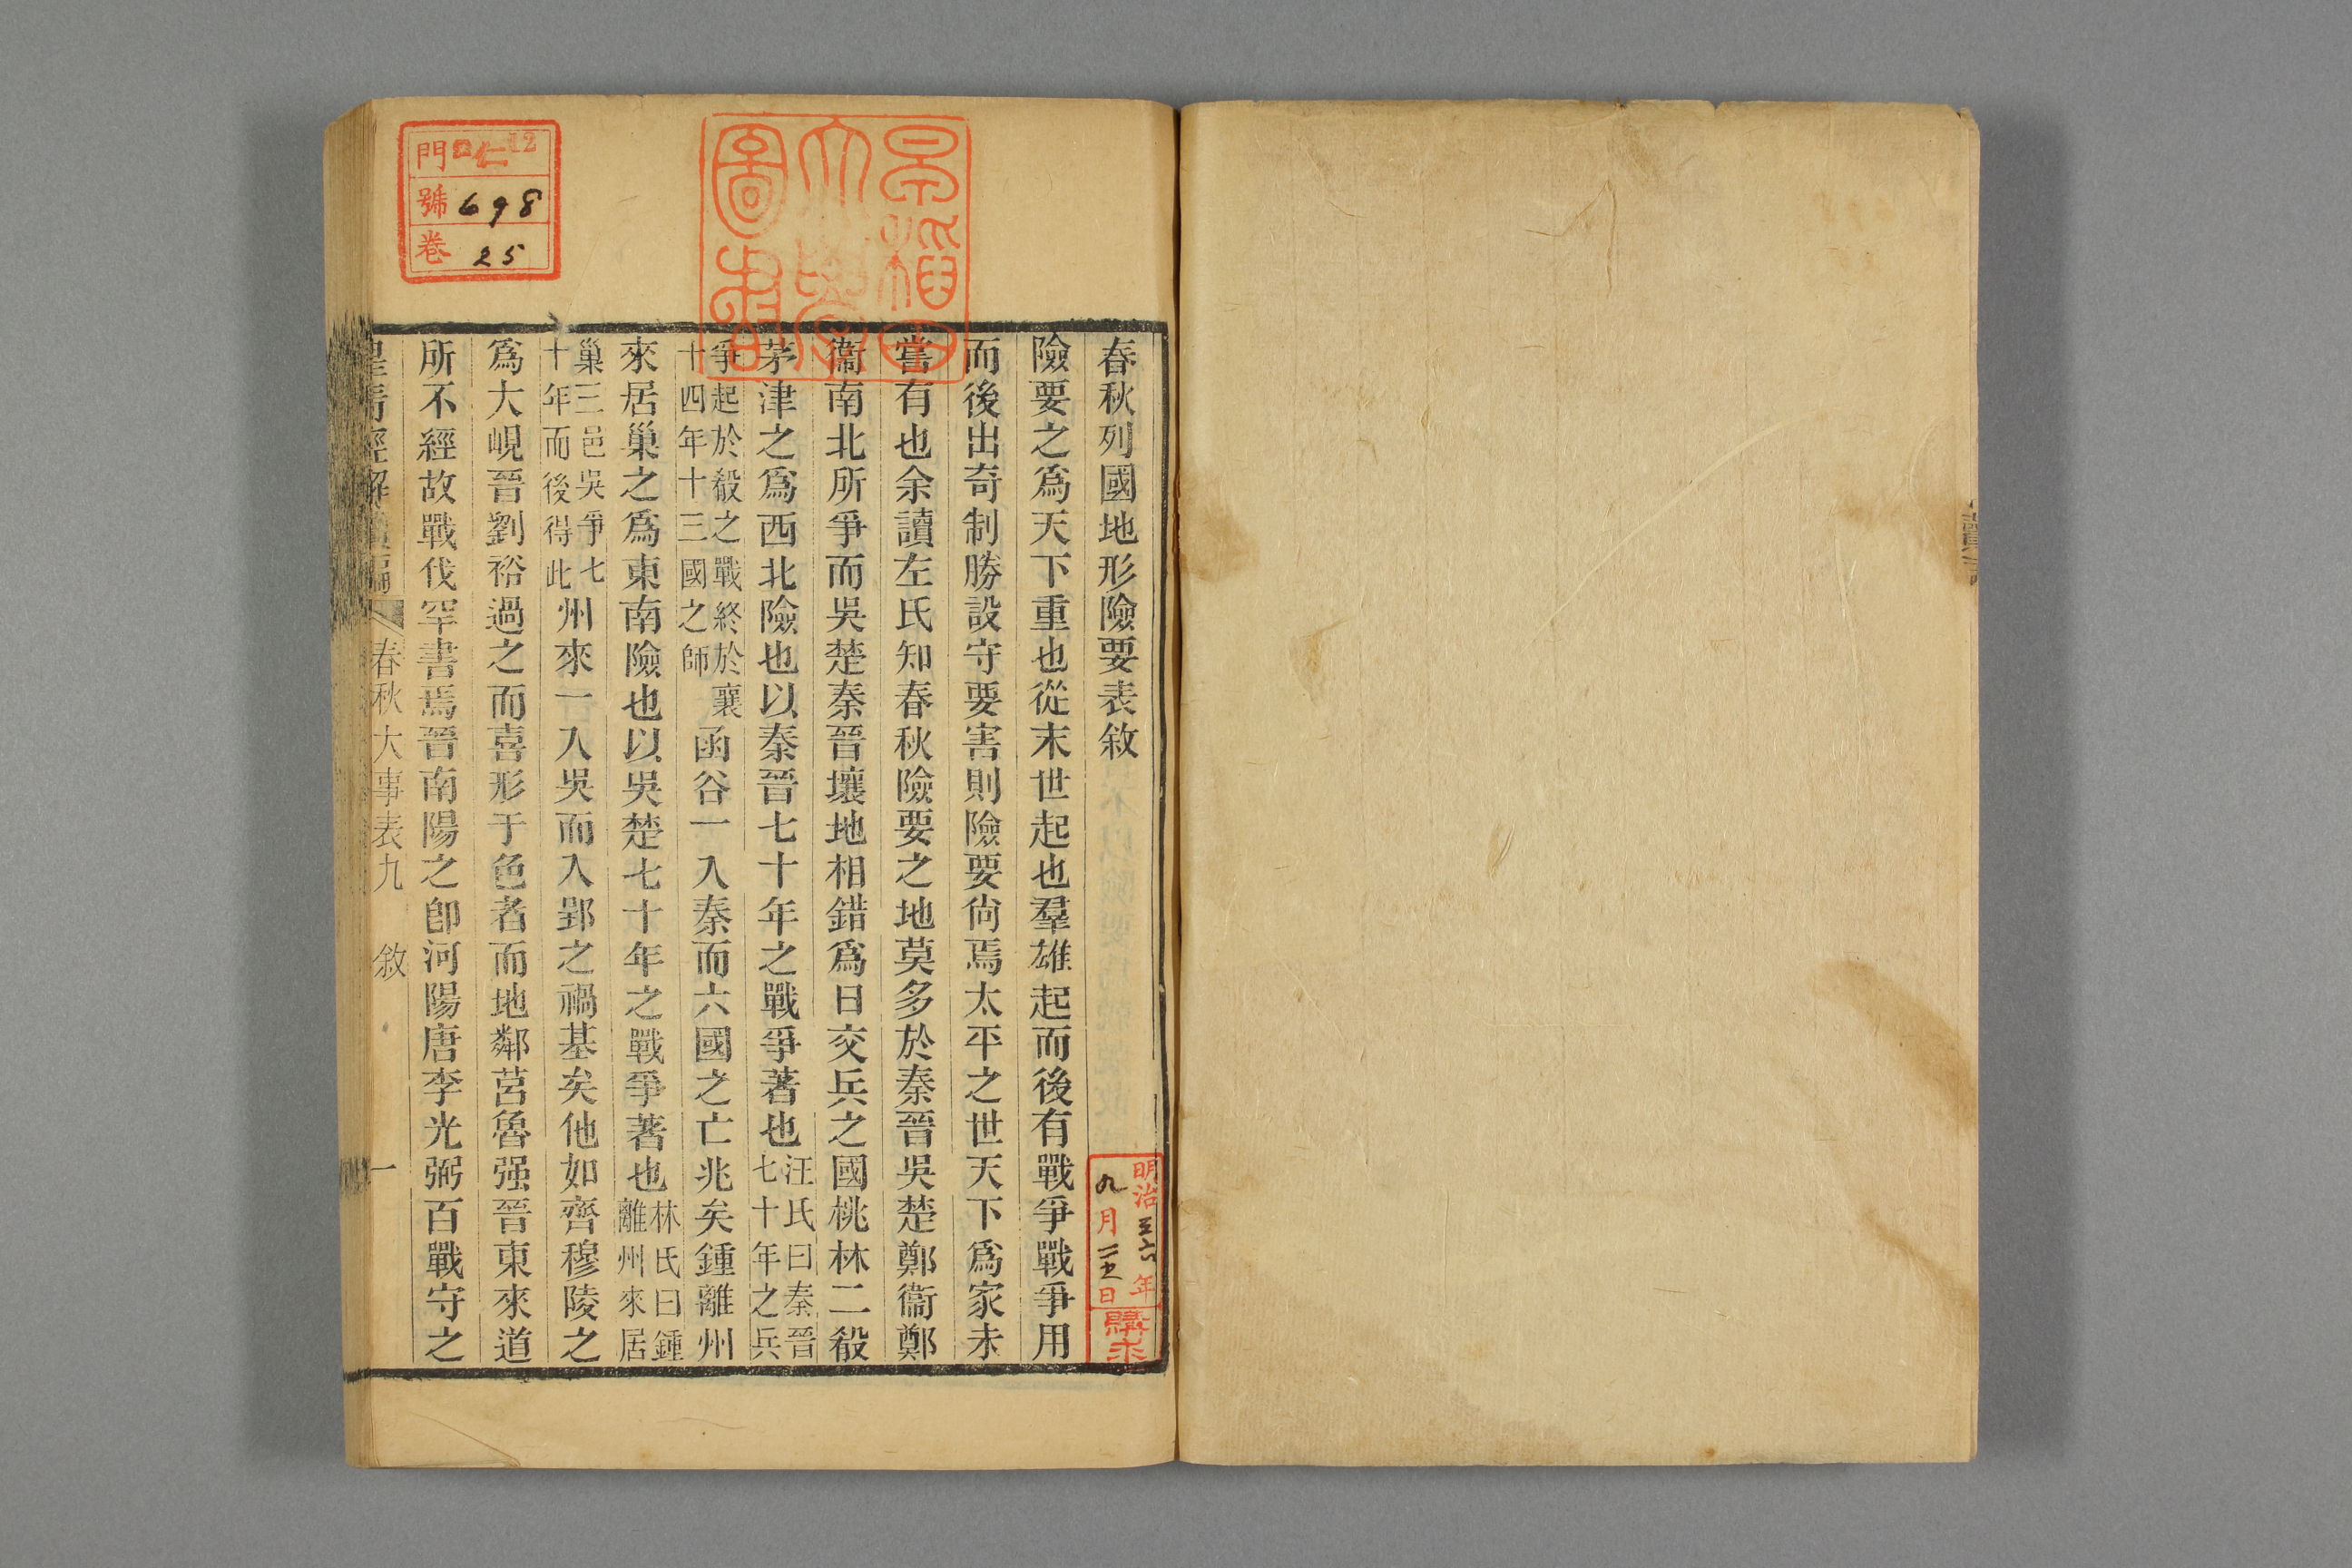 春秋列國地形險要表敘
險要之爲天下重也從末世起也羣雄起而後有戰爭戰爭用
而後出奇制勝設守要害則險要尙焉太平之世天下爲家未
嘗有也余讀左氏知春秋險要之地莫多於秦晉吳楚鄭衞鄭
衞南北所爭而吳楚秦晉壤地相錯爲日交兵之國桃林二殽
茅津之爲西北險也以秦晉七十年之戰爭著也汪氏曰秦晉七十年之兵
爭起於殽之戰終於襄十四年十三國之師函谷一入秦而六國之亡兆矣鍾離州
來居巢之爲東南險也以吳楚七十年之戰爭著也林氏曰鍾離州來居
巢三邑吳爭七十年而後得此州來一入吳而入郢之禍基矣他如齊穆陵之
爲大峴晉劉裕過之而喜形于色者而地鄰莒魯强晉東來道
所不經故戰伐罕書焉晉南陽之卽河陽唐李光弼百戰守之
皇淸經解續編
春秋大事表九 敘
一
門 口仁 12
號 698
卷 25
早稻田大學圖書
明治三六年
九月二五日
購求